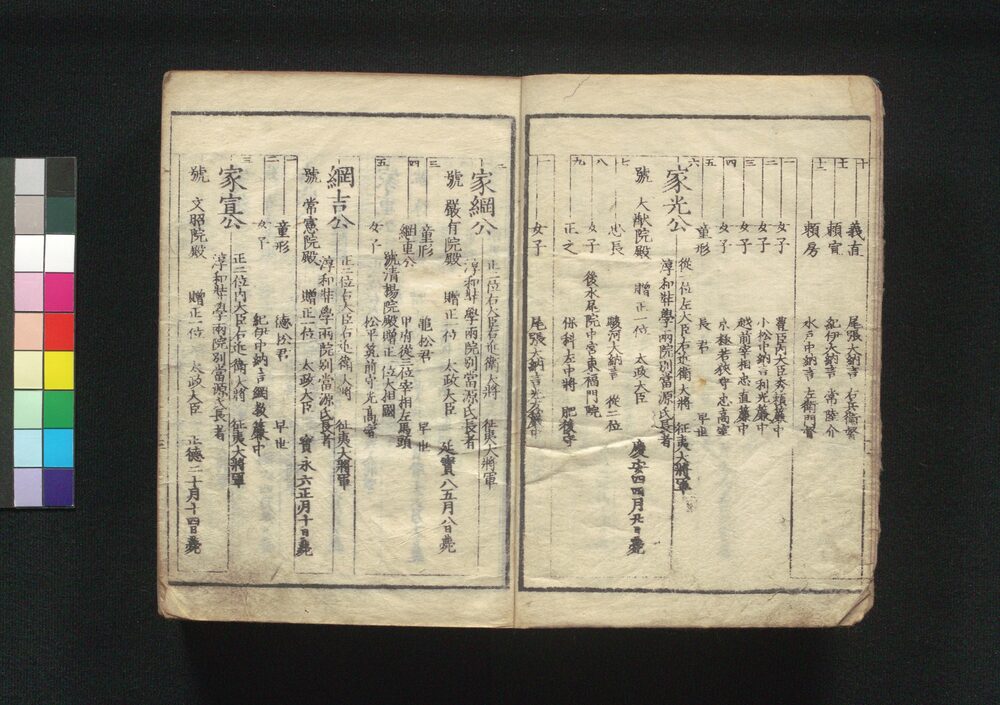 十 義直 尾張大納言 右兵衛督
十一 頼宣 紀伊大納言 常陸介
十二 頼房 水戸中納言 左衛門督
一 女子 豊臣内大臣秀頼簾中
二 女子 小松中納言利光簾中
三 女子 越前宰相忠直簾中
四 女子 京極若狭守忠高室
五 童形 長君 早世
六 家光公 從一位左大臣右近衛大将 征夷大將軍
淳和奘學兩院別當源氏長者
號 大猷院殿 贈正一位 太政大臣 慶安四四月廿日薨
七 忠長 駿河大納言 從二位
八 女子 後水尾院中宮東福門院
九 正之 保科左中將 肥後守
十 女子 尾張大納言光友簾中
二 家綱公 正二位右大臣右近衛大將 征夷大將軍
淳和奘學兩院別當源氏長者
號 嚴有院殿 贈正一位 太政大臣 延寶八五月八日薨
三 童形 亀松君 早世
四 綱重公 甲府從三位宰相左馬頭
號清揚院殿贈正一位大相國
五 女子 松平筑前守光高室
綱吉公 正二位右大臣右近衛大將 征夷大將軍
淳和奘學兩院別當源氏長者
號 常憲院殿 贈正一位 太政大臣 寳永六正月十日薨
一 童形 德松君 早世
二 女子 紀伊中納言綱教簾中
三 家宣公 正二位内大臣右近衛大將 征夷大將軍
淳和奘學兩院別當源氏長者
號 文昭院殿 贈正一位 太政大臣 正德二十月十四日薨